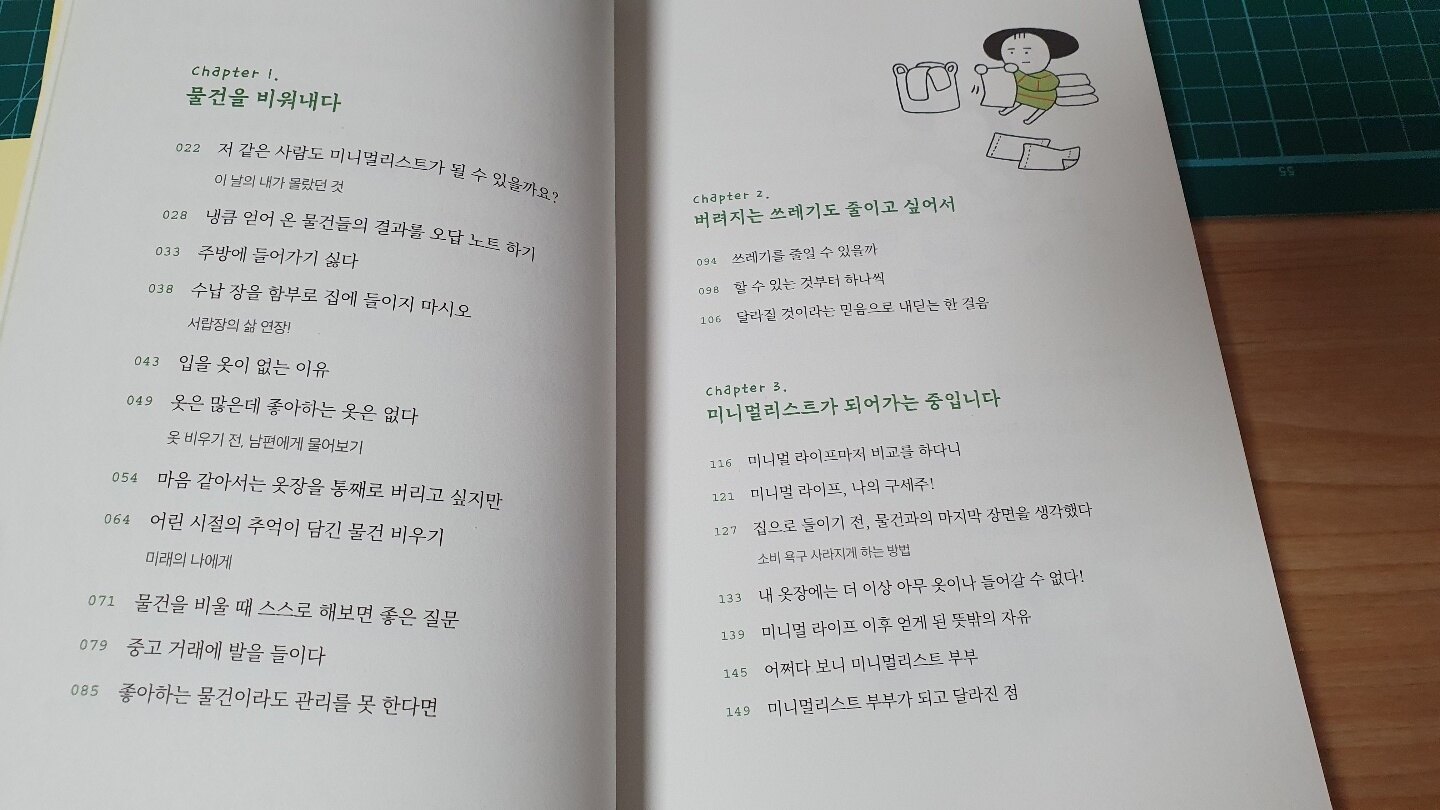 chapter 1.
물건을 비워내다
022 저 같은 사람도 미니멀리스트가 될 수 있을까요?
이 날의 내가 몰랐던 것
028 냉큼 얻어 온 물건들의 결과를 오답 노트 하기
033 주방에 들어가기 싫다
038 수납 장을 함부로 집에 들이지 마시오
서랍장의 삶 연장!
043 입을 옷이 없는 이유
049 옷은 많은데 좋아하는 옷은 없다
옷 비우기 전, 남편에게 물어보기
054 마음 같아서는 옷장을 통째로 버리고 싶지만
064 어린 시절의 추억이 담긴 물건 비우기
미래의 나에게
071 물건을 비울 때 스스로 해보면 좋은 질문
079 중고 거래에 발을 들이다
085 좋아하는 물건이라도 관리를 못 한다면
chapter 2.
버려지는 쓰레기도 줄이고 싶어서
094 쓰레기를 줄일 수 있을까
098 할 수 있는 것부터 하나씩
106 달라질 것이라는 믿음으로 내딛는 한 걸음
chapter 3.
미니멀리스트가 되어가는 중입니다
116 미니멀 라이프마저 비교를 하다니
121 미니멀 라이프, 나의 구세주!
127 집으로 들이기 전, 물건과의 마지막 장면을 생각했다
소비 욕구 사라지게 하는 방법
133 내 옷장에는 더 이상 아무 옷이나 들어갈 수 없다!
139 미니멀 라이프 이후 얻게 된 뜻밖의 자유
145 어쩌다 보니 미니멀리스트 부부
149 미니멀리스트 부부가 되고 달라진 점
55